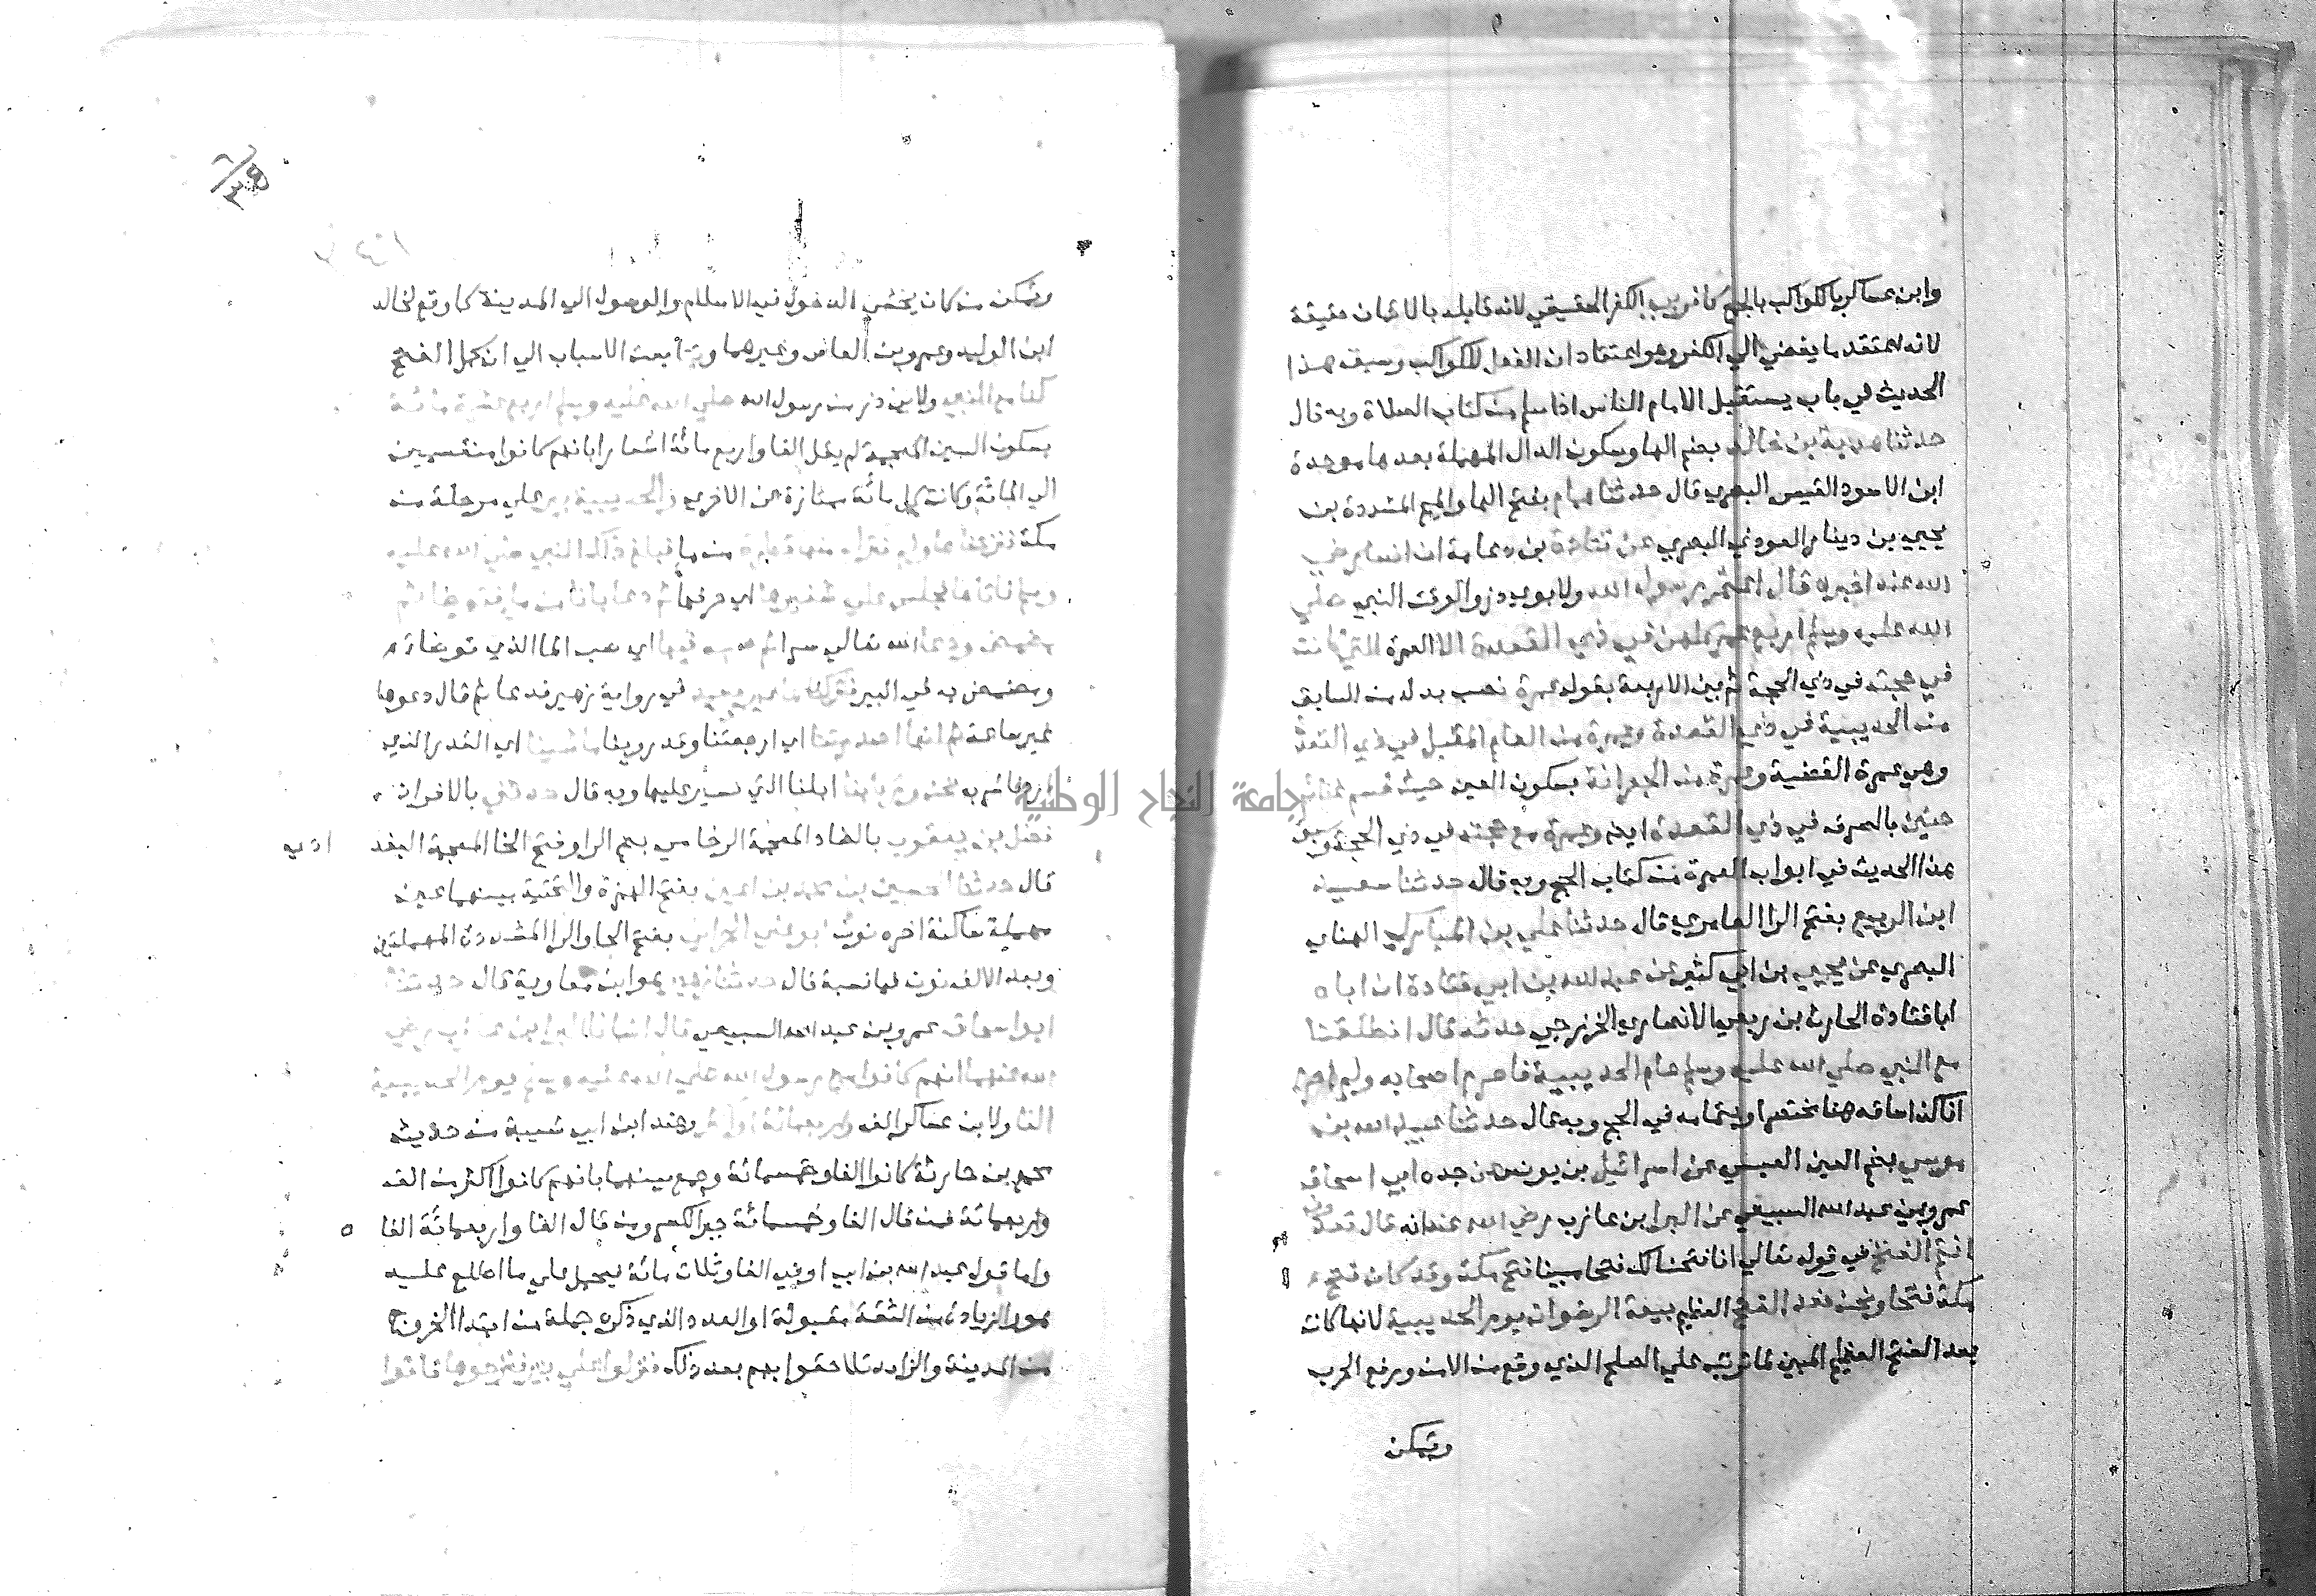 وابن عساكر بالكواكب بالجمع كافر بي الكفر الحقيقي لانه قابله بالايمان حقيقة
لانه اعتقد ما يفضي الي الكفر وهو اعتقاد ان الفعل للكواكب وسبق هذا
الحديث في باب يستقبل الامام الناس اذا سلم من كتاب الصلاة وبه قال
حدثنا هدبة بن خالد بضم الها وسكون الدال المهملة بعدها موحدة
ابن الاسود القيسي البصري قال حدثنا همام بفتح الها والميم المشددة بن
يحيي بن دينار العوذي البصري عن قتادة بن دعامة ان انسا رضي
الله عنه اخبره قال اعتمر رسول الله ولابوي ذر والوقت النبي صلي
الله عليه وسلم اربع عمر كلهن في ذي القعدة الا العمرة التي كانت
في حجته في ذي الحجة ثم بين الاربعة بقوله عمرة نصب بدل من السابق
من الحديبية في ذي القعدة وعمرة من العام المقبل في ذي القعدة
وهي عمرة القضية وعمرة من الجعرانة بسكون العين حيث قسم غنائم
حنين بالصرف في ذي القعدة ايضا وعمرة مع حجته في ذي الحجة وسبق
هذا الحديث في ابواب العمرة من كتاب الحج وبه قال حدثنا سعيد
ابن الربيع بفتح الرا العامري قال حدثنا علي بن المبارك الهناي
البصري عن يحيي بن ابي كثير عن عبد الله بن ابي قتادة ان اباه
ابا قتادة الحارث بن ربعي الانصاري الخزرجي حدثه قال انطلقنا
مع النبي صلي الله عليه وسلم عام الحديبية فاحرم اصحابه ولم احرم
انا كذا ساقه هنا مختصرا وبتمامه في الحج وبه قال حدثنا عبيد الله بن
موسي بضم العين العبسي عن اسرائيل بن يونس عن جده ابي اسحاق
عمرو بن عبد الله السبيعي عن البرا بن عازب رضي الله عنه انه قال تعدون
انتم الفتح في قوله تعالي انا فتحنا لك فتحا مبينا فتح مكة وقد كان فتح
مكة فتحا ونحن نعد الفتح العظيم بيعة الرضوان يوم الحديبية لانها كانت
بعد الفتح العظيم المبين لما ترتب علي الصلح الذي وقع من الامن ورفع الحرب
وتمكن
وتمكن من كان يخشي الدخول في الاسلام والوصول الي المدينة كما وقع لخالد
ابن الوليد وعمرو بن العاص وغيرهما وتتابعت الاسباب الي ان كمل الفتح
كنا مع النبي ولابي ذر مع رسول الله صلي الله عليه وسلم اربع عشرة مائة
بسكون الشين المعجمة لم يقل الفا واربع مائة اشعارا بانهم كانوا منقسمين
الي المائة وكانت كل مائة ممتازة عن الاخري والحديبية بير علي مرحلة من
مكة فنزحناها ولم نترك فيها قطرة من ما فبلغ ذلك النبي صلي الله عليه
وسلم فاتاها فجلس علي شفيرها اي حرفها ثم دعا بانا من ما فتوضا ثم
مضمض ودعا الله تعالي سرا ثم صبه فيها اي صب الما الذي توضا به
ومضمض به في البير فتركناها غير بعيد في رواية زهير فدعا ثم قال دعوها
غير ساعة ثم انها اصدرتنا اي ارجعتنا وقد روينا ما شينا اي القدر الذي
اردنا شربه نحن وركابنا ابلنا التي نسير عليها وبه قال حدثني بالافراد
فضل بن يعقوب بالضاد المعجمة الرخامي بضم الرا وفتح الخا المعجمة البغد ادي
قال حدثنا الحسين بن محمد بن اعين بفتح الهمزة والتحتية بينهما عين
مهملة ساكنة اخره نون ابو علي الحراني بفتح الحا والرا المشددة المهملتين
وبعد الالف نون فيا نسبة قال حدثنا زهير هو ابن معاوية قال حدثنا
ابو اسحاق عمرو بن عبد الله السبيعي قال انبانا البرا بن عازب رضي
الله عنهما انهم كانوا مع رسول الله صلي الله عليه وسلم يوم الحديبية
الفا ولابن عساكر الف واربعمائة او اكثر وعند ابن ابي شيبة من حديث
مجمع بن حارثة كانوا الفا وخمسمائة وجمع بينهما بانهم كانوا اكثر من الف
واربعمائة فمن قال الفا وخمسمائة جبر الكسر ومن قال الفا واربعمائة الغا ه
واما قول عبد الله بن ابي اوفي الفا وثلاث مائة فيحمل علي ما اطلع عليه
هو والزيادة من الثقة مقبولة او العدد الذي ذكره جملة من ابتدا الخروج
من المدينة والزايد تلاحقوا بهم بعد ذلك فنزلوا علي بير فنزحوها فاتوا